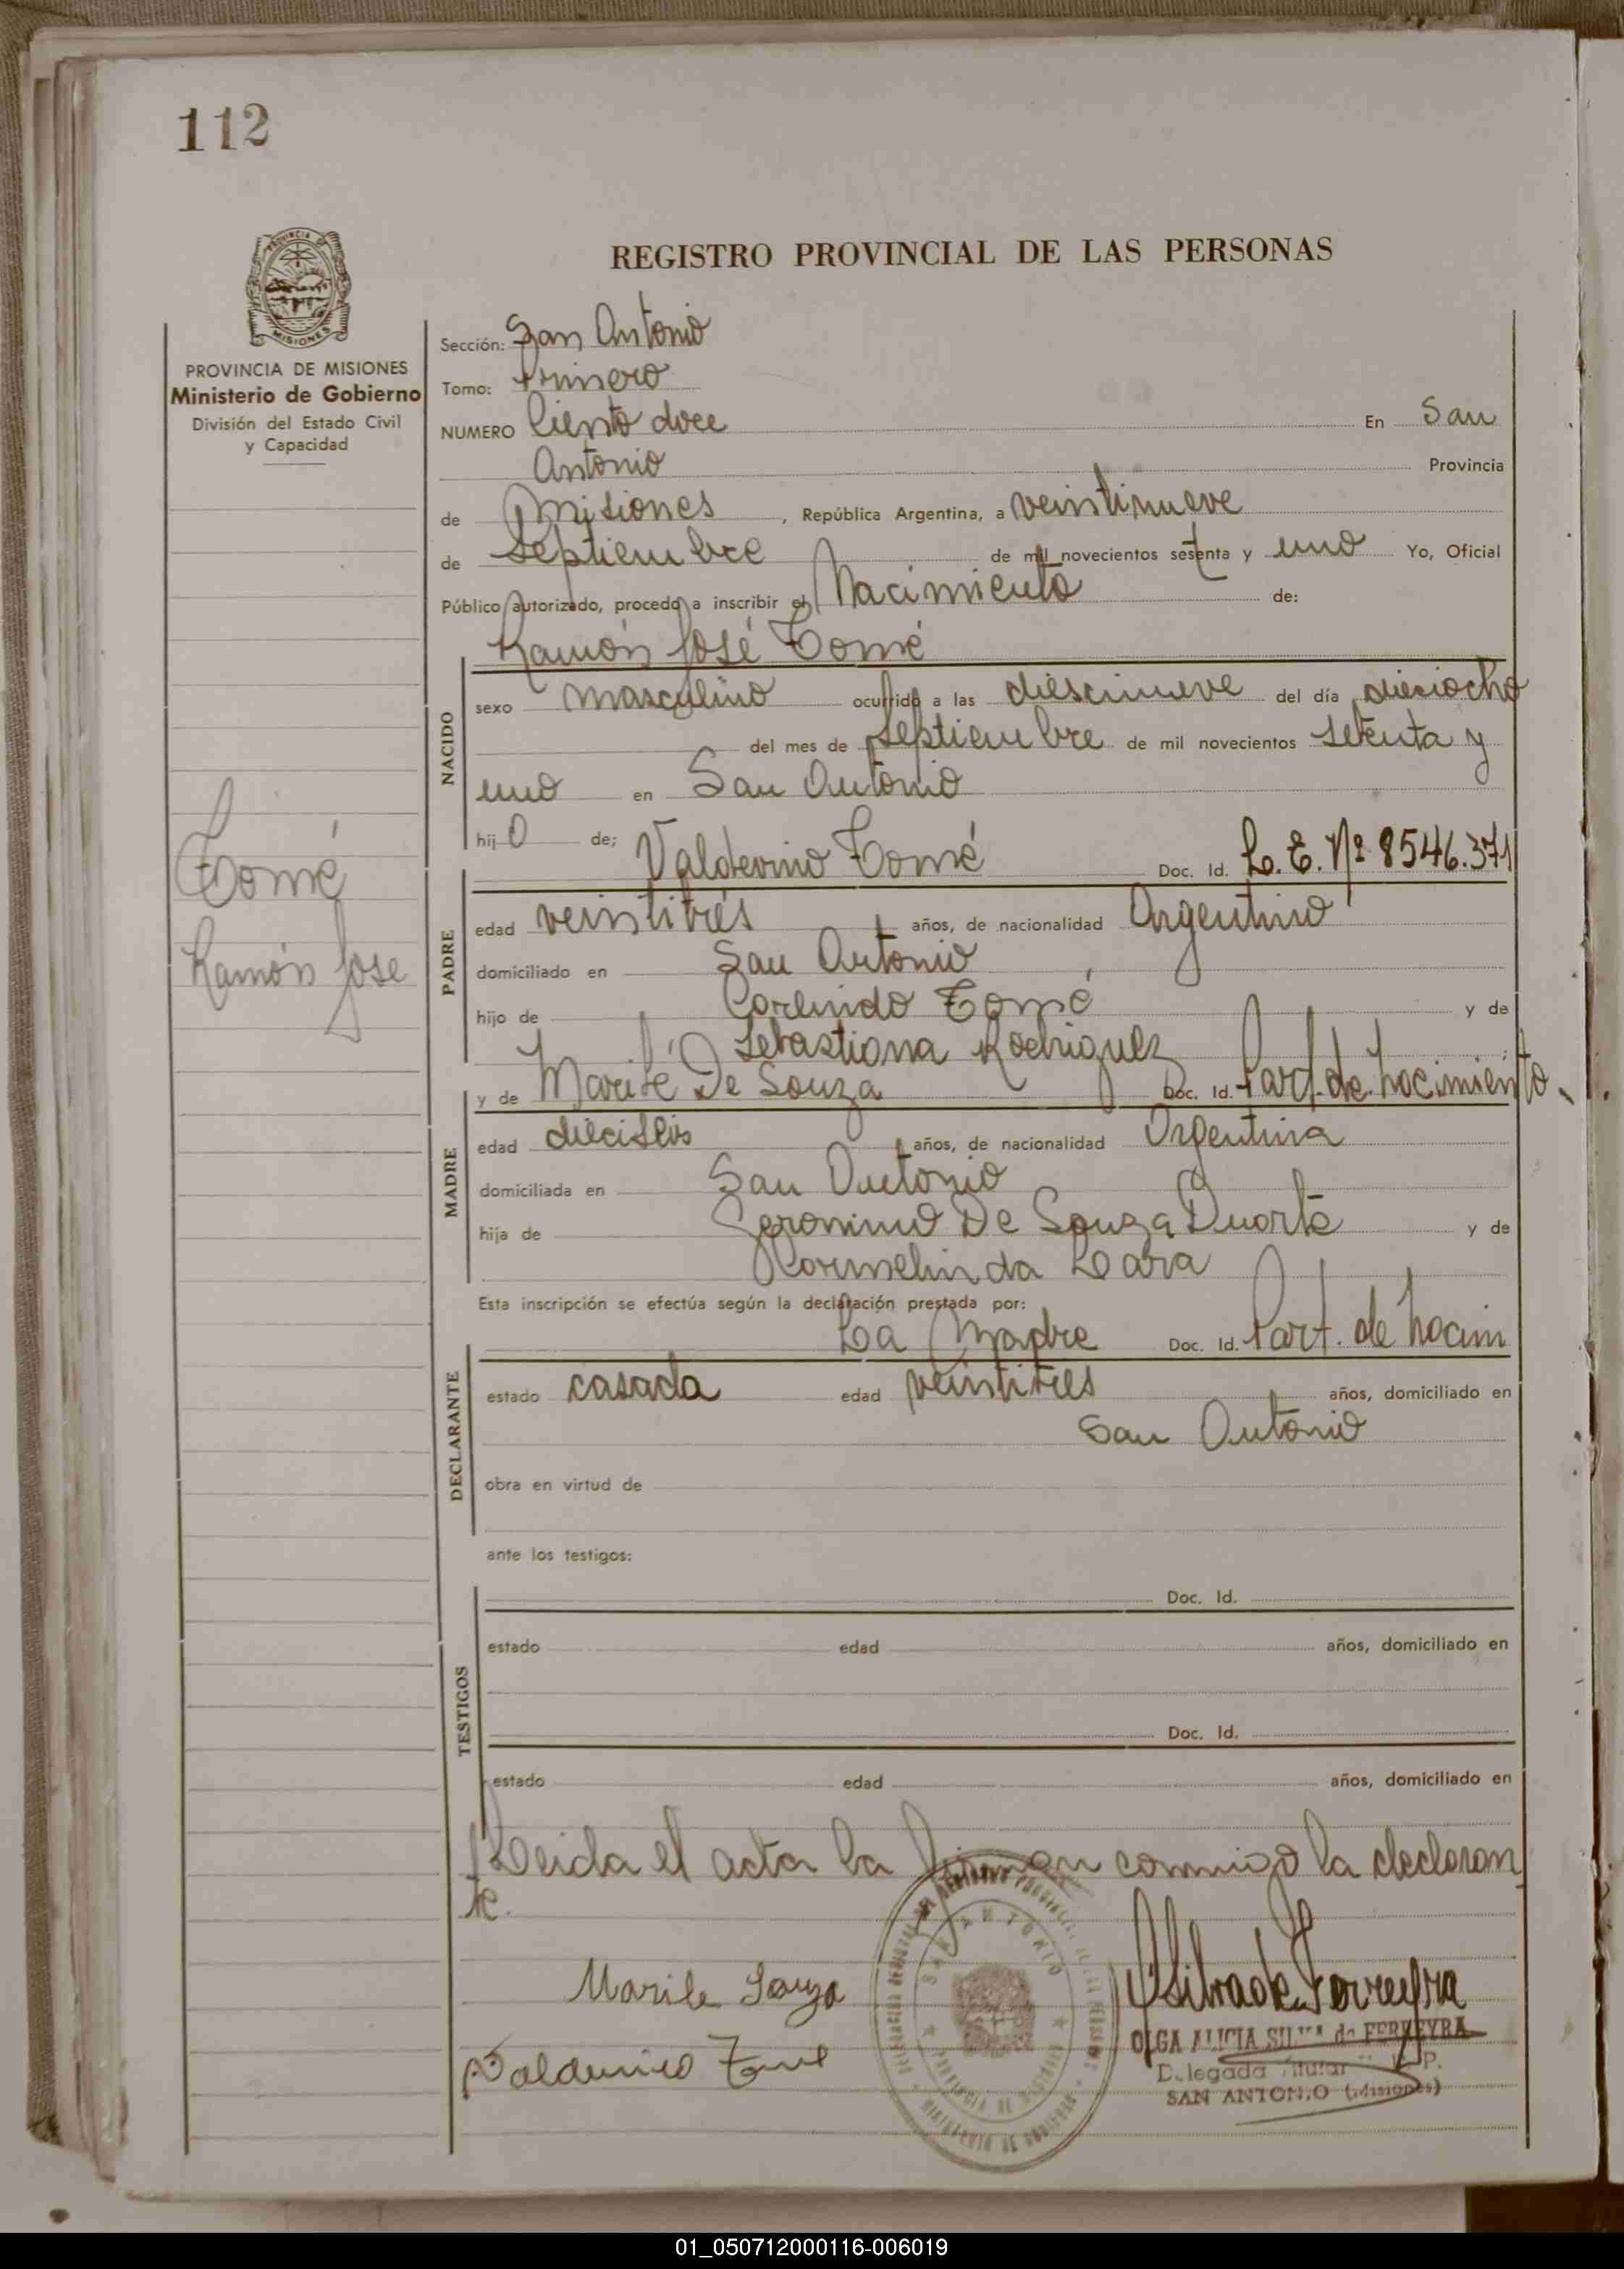 112
REGISTRO PROVINCIAL DE LAS PERSONAS
PROVINCIA DE MISIONES
Ministerio de Gobierno
División del Estado Civil
y Capacidad
Sección: San Antonio
Tomo: Primero
NUMERO Ciento doce En San
Antonio Provincia
de Misiones, República Argentina, a veintinueve
de Septiembre de mil novecientos setenta y uno Yo, Oficial
Público autorizado, procedo a inscribir el Nacimiento de:
Ramón José Tomé
NACIDO
sexo masculino ocurrido a las diescinueve del día dieciocho
del mes de Septiembre de mil novecientos setenta y
uno en San Antonio
hijo de; Valdevino Tomé Doc. Id. L. E. Nº 8546.371
Tomé
Ramón Jose
PADRE
edad veintitrés años, de nacionalidad Argentino
domiciliado en San Antonio
hijo de Tomé y de
Sebastiana Rodriguez
y de Marile De Souza Doc. Id. Part. de nacimiento
MADRE
edad dieciseis años, de nacionalidad Argentina
domiciliada en San Antonio
hija de Geronimo De Souza Duarte y de
Lara
Esta inscripción se efectúa según la declaración prestada por:
La Madre Doc. Id. Part. de nacim
DECLARANTE
estado casada edad veintitres años, domiciliado en
San Antonio
obra en virtud de
ante los testigos:
Doc. Id.
TESTIGOS
estado edad años, domiciliado en
Doc. Id.
estado edad años, domiciliado en
Leida el acta la firman conmigo la declaran
te.
Marile Souza
SAN ANTONIO
OLGA ALICIA SILVA de FERREYRA
Delegada Titular
SAN ANTONIO (Misiones)
01_050712000116-006019